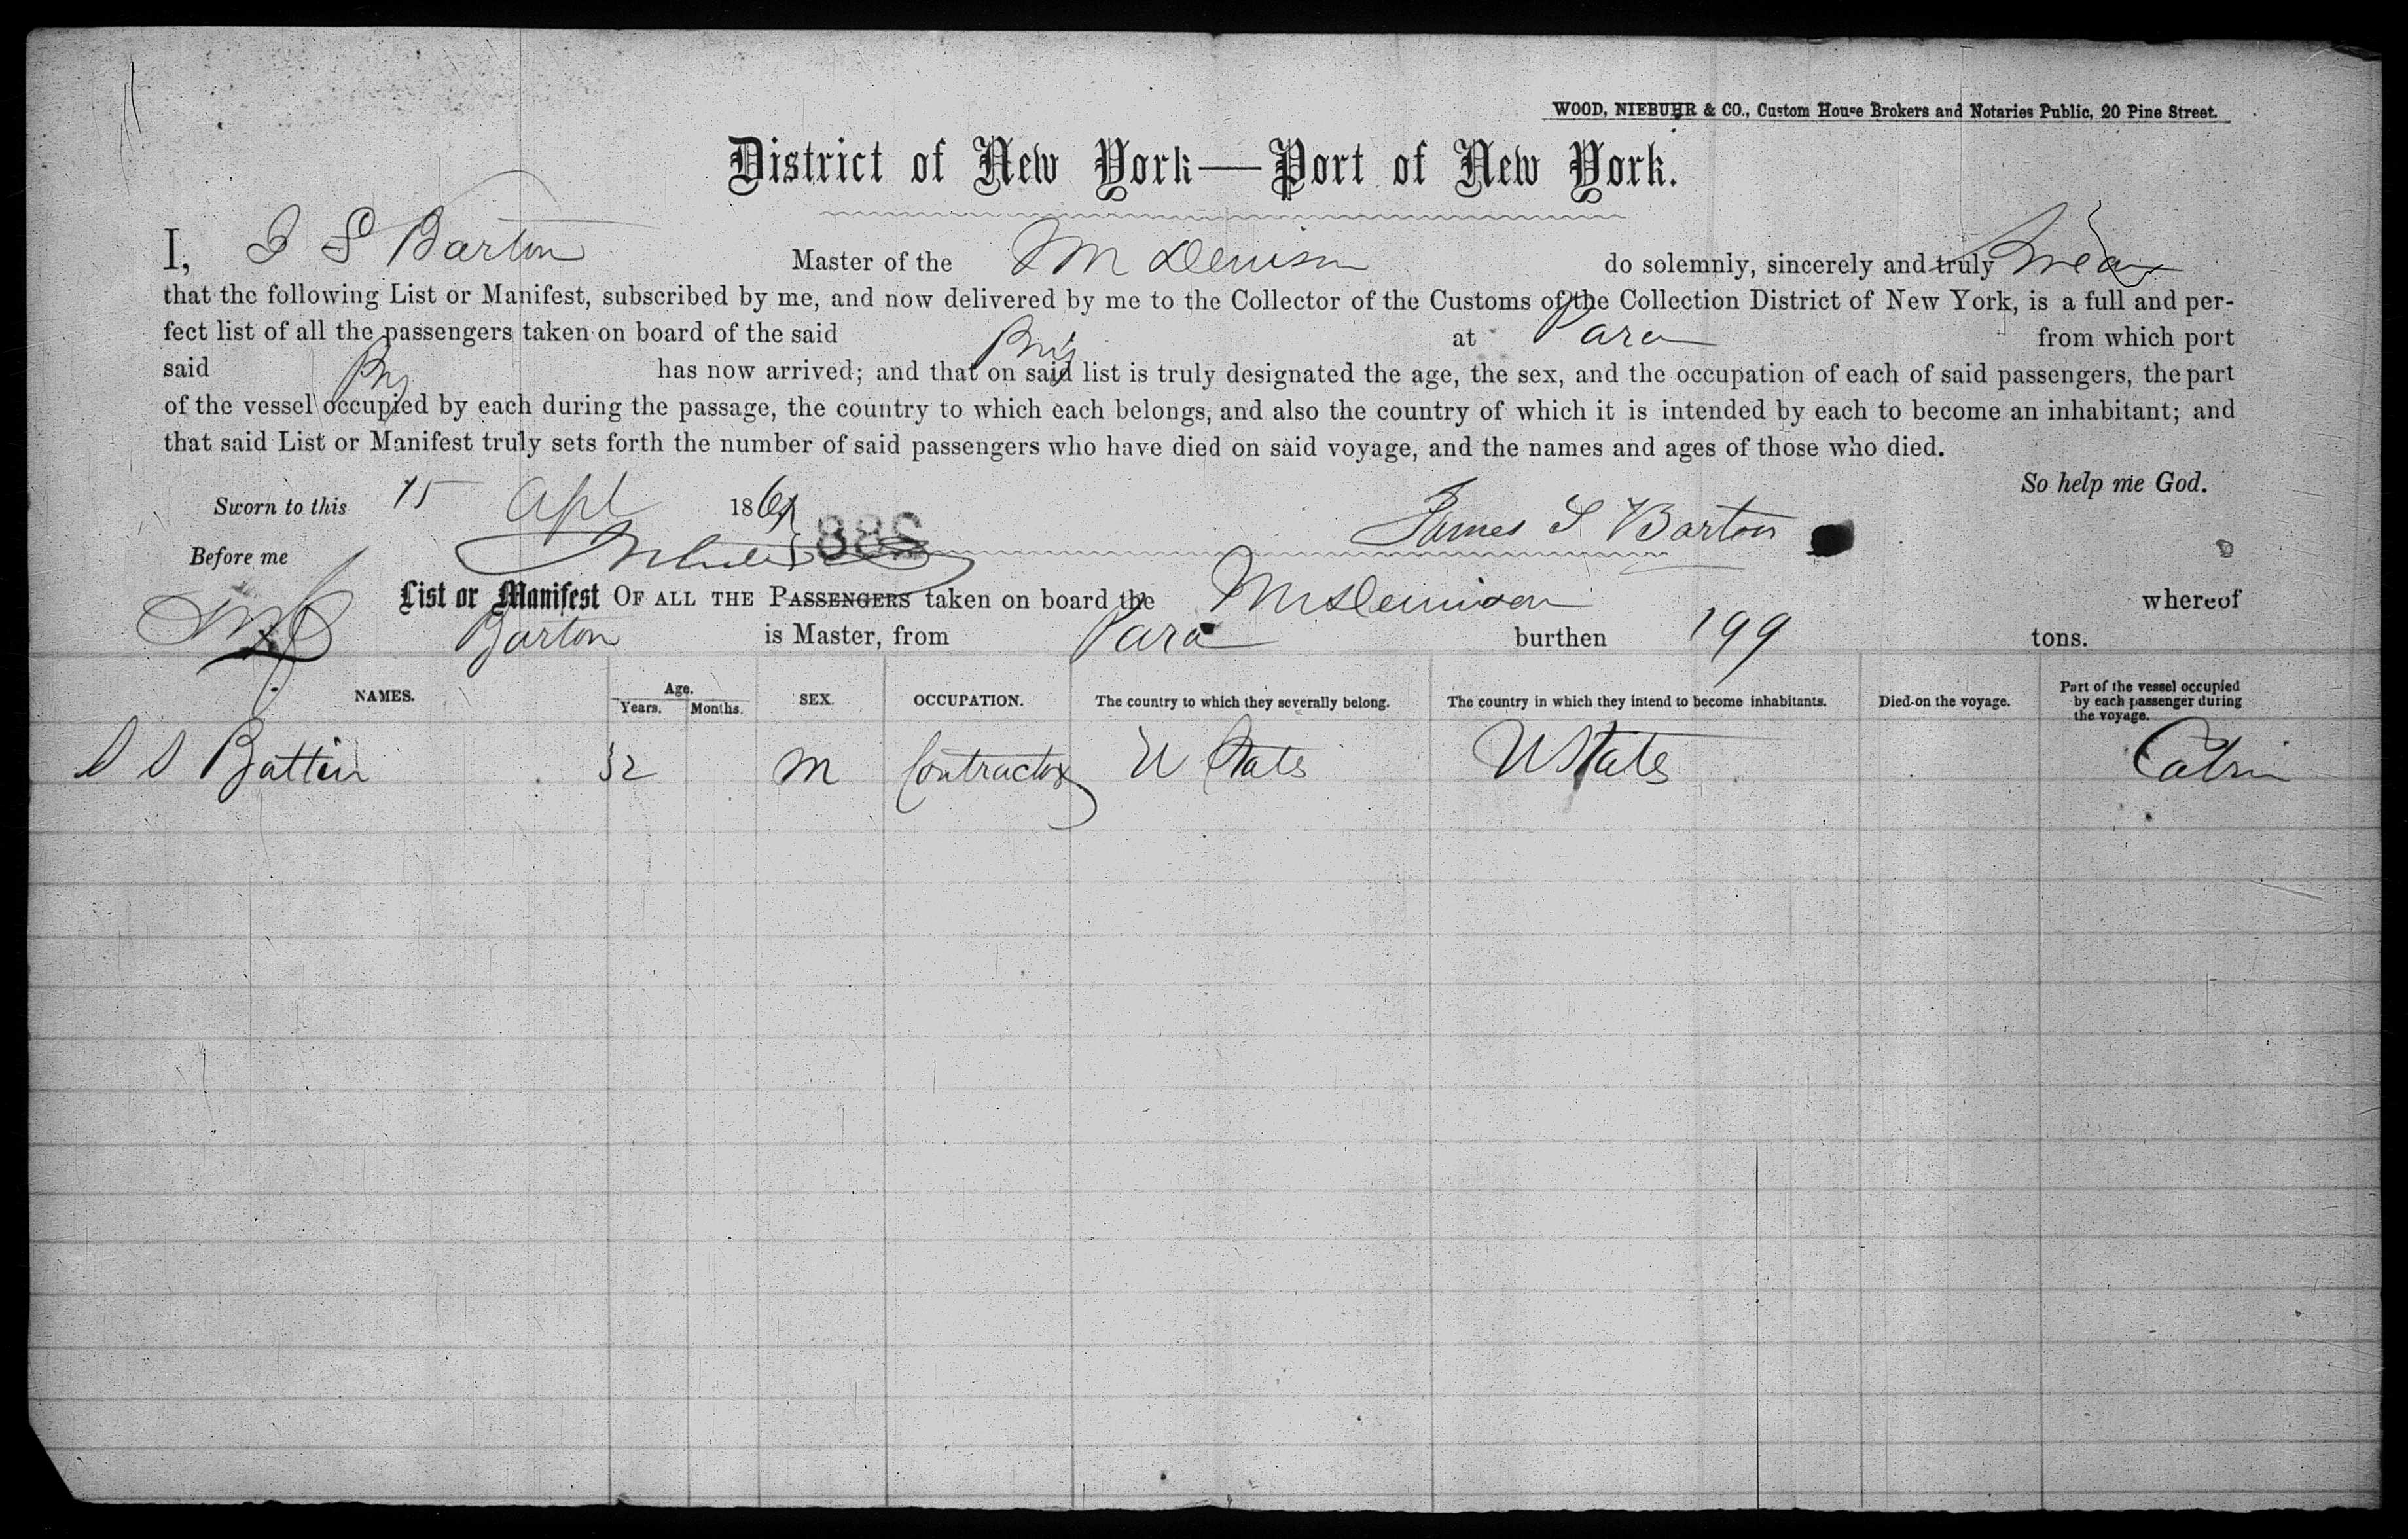 WOOD, NIEBUHR & CO., Custom House Brokers and Notaries Public, 20 Pine Street.
District of New York—Port of New York.
I, J S Barton Master of the M Denison do solemnly, sincerely and truly swear
that the following List or Manifest, subscribed by me, and now delivered by me to the Collector of the Customs of the Collection District of New York, is a full and per-
fect list of all the passengers taken on board of the said Brig at Para from which port
said Brig has now arrived; and that on said list is truly designated the age, the sex, and the occupation of each of said passengers, the part
of the vessel occupied by each during the passage, the country to which each belongs, and also the country of which it is intended by each to become an inhabitant; and
that said List or Manifest truly sets forth the number of said passengers who have died on said voyage, and the names and ages of those who died.
So help me God.
Sworn to this 15 Apl 186
James S Barton
Before me
288
List or Manifest OF ALL THE PASSENGERS taken on board the M Dennison whereof
Barton is Master, from Para burthen 199 tons.
NAMES. Age. Years. Months. SEX. OCCUPATION. The country to which they severally belong. The country in which they intend to become inhabitants. Died on the voyage. Part of the vessel occupied by each passenger during the voyage.
S S Battin 32 M Contractor U States U States Cabin